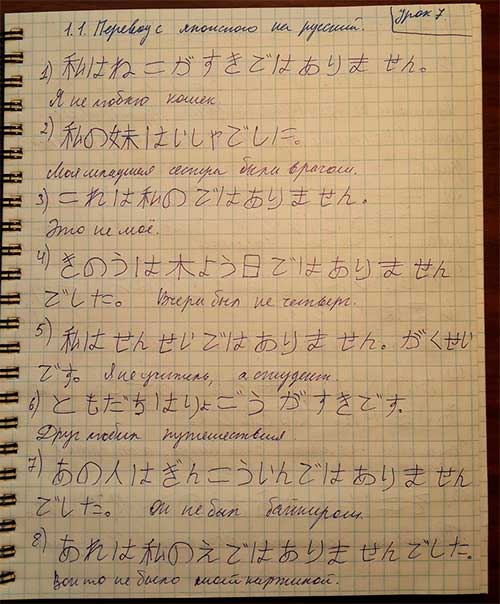 Урок 7.
1.1. Перевод с японского на русский.
1) 私はねこがすきではありません。
Я не люблю кошек.
2) 私の妹はいしゃでした。
Моя младшая сестра была врачом.
3) これは私のではありません。
Это не моё.
4) きのうは木よう日ではありません
でした。 Вчера был не четверг.
5) 私はせんせいではありません。がくせい
です。 Я не учитель, а студент.
6) ともだちはりょこうがすきです。
Друг любит путешествия
7) あの人はぎんこういんではありません
でした。 Он не был банкиром.
8) あれは私のえではありませんでした。
Вон то не было моей картиной.